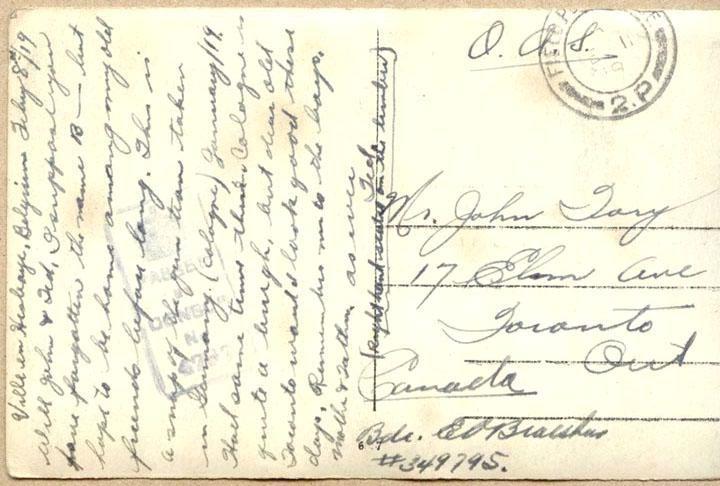 Ville en Hesbaye, Belgium Feby 8th/19
Well John & Ted, I suppose you
have forgotten the name B — but
hope to be home among my old
friends before long. This is
a snap of the gun team taken
in Germany (Cologne) January/19.
Had some times there. Cologne is
quite a burgh, but dear old
Toronto would look good these
days. Remember me to the boys,
Mother & Father. as ever
Ted.
(Right hand seated on the limber)
O. A. S.
FIELD
2.P
PASSED
CENSOR
Mr. John Tory
17 Elm Ave
Toronto
Ont
Canada
Bdr.
#349795.